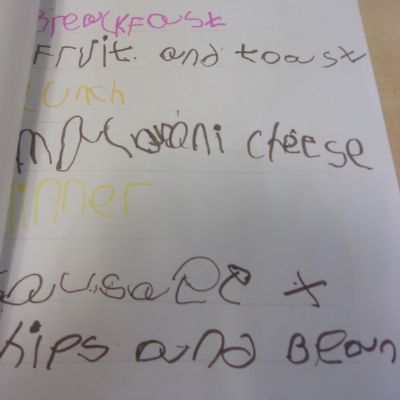 BreakFast
Fruit. and toast
Lunch
macaroni cheese
Dinner
Sausage +
hips and Bean